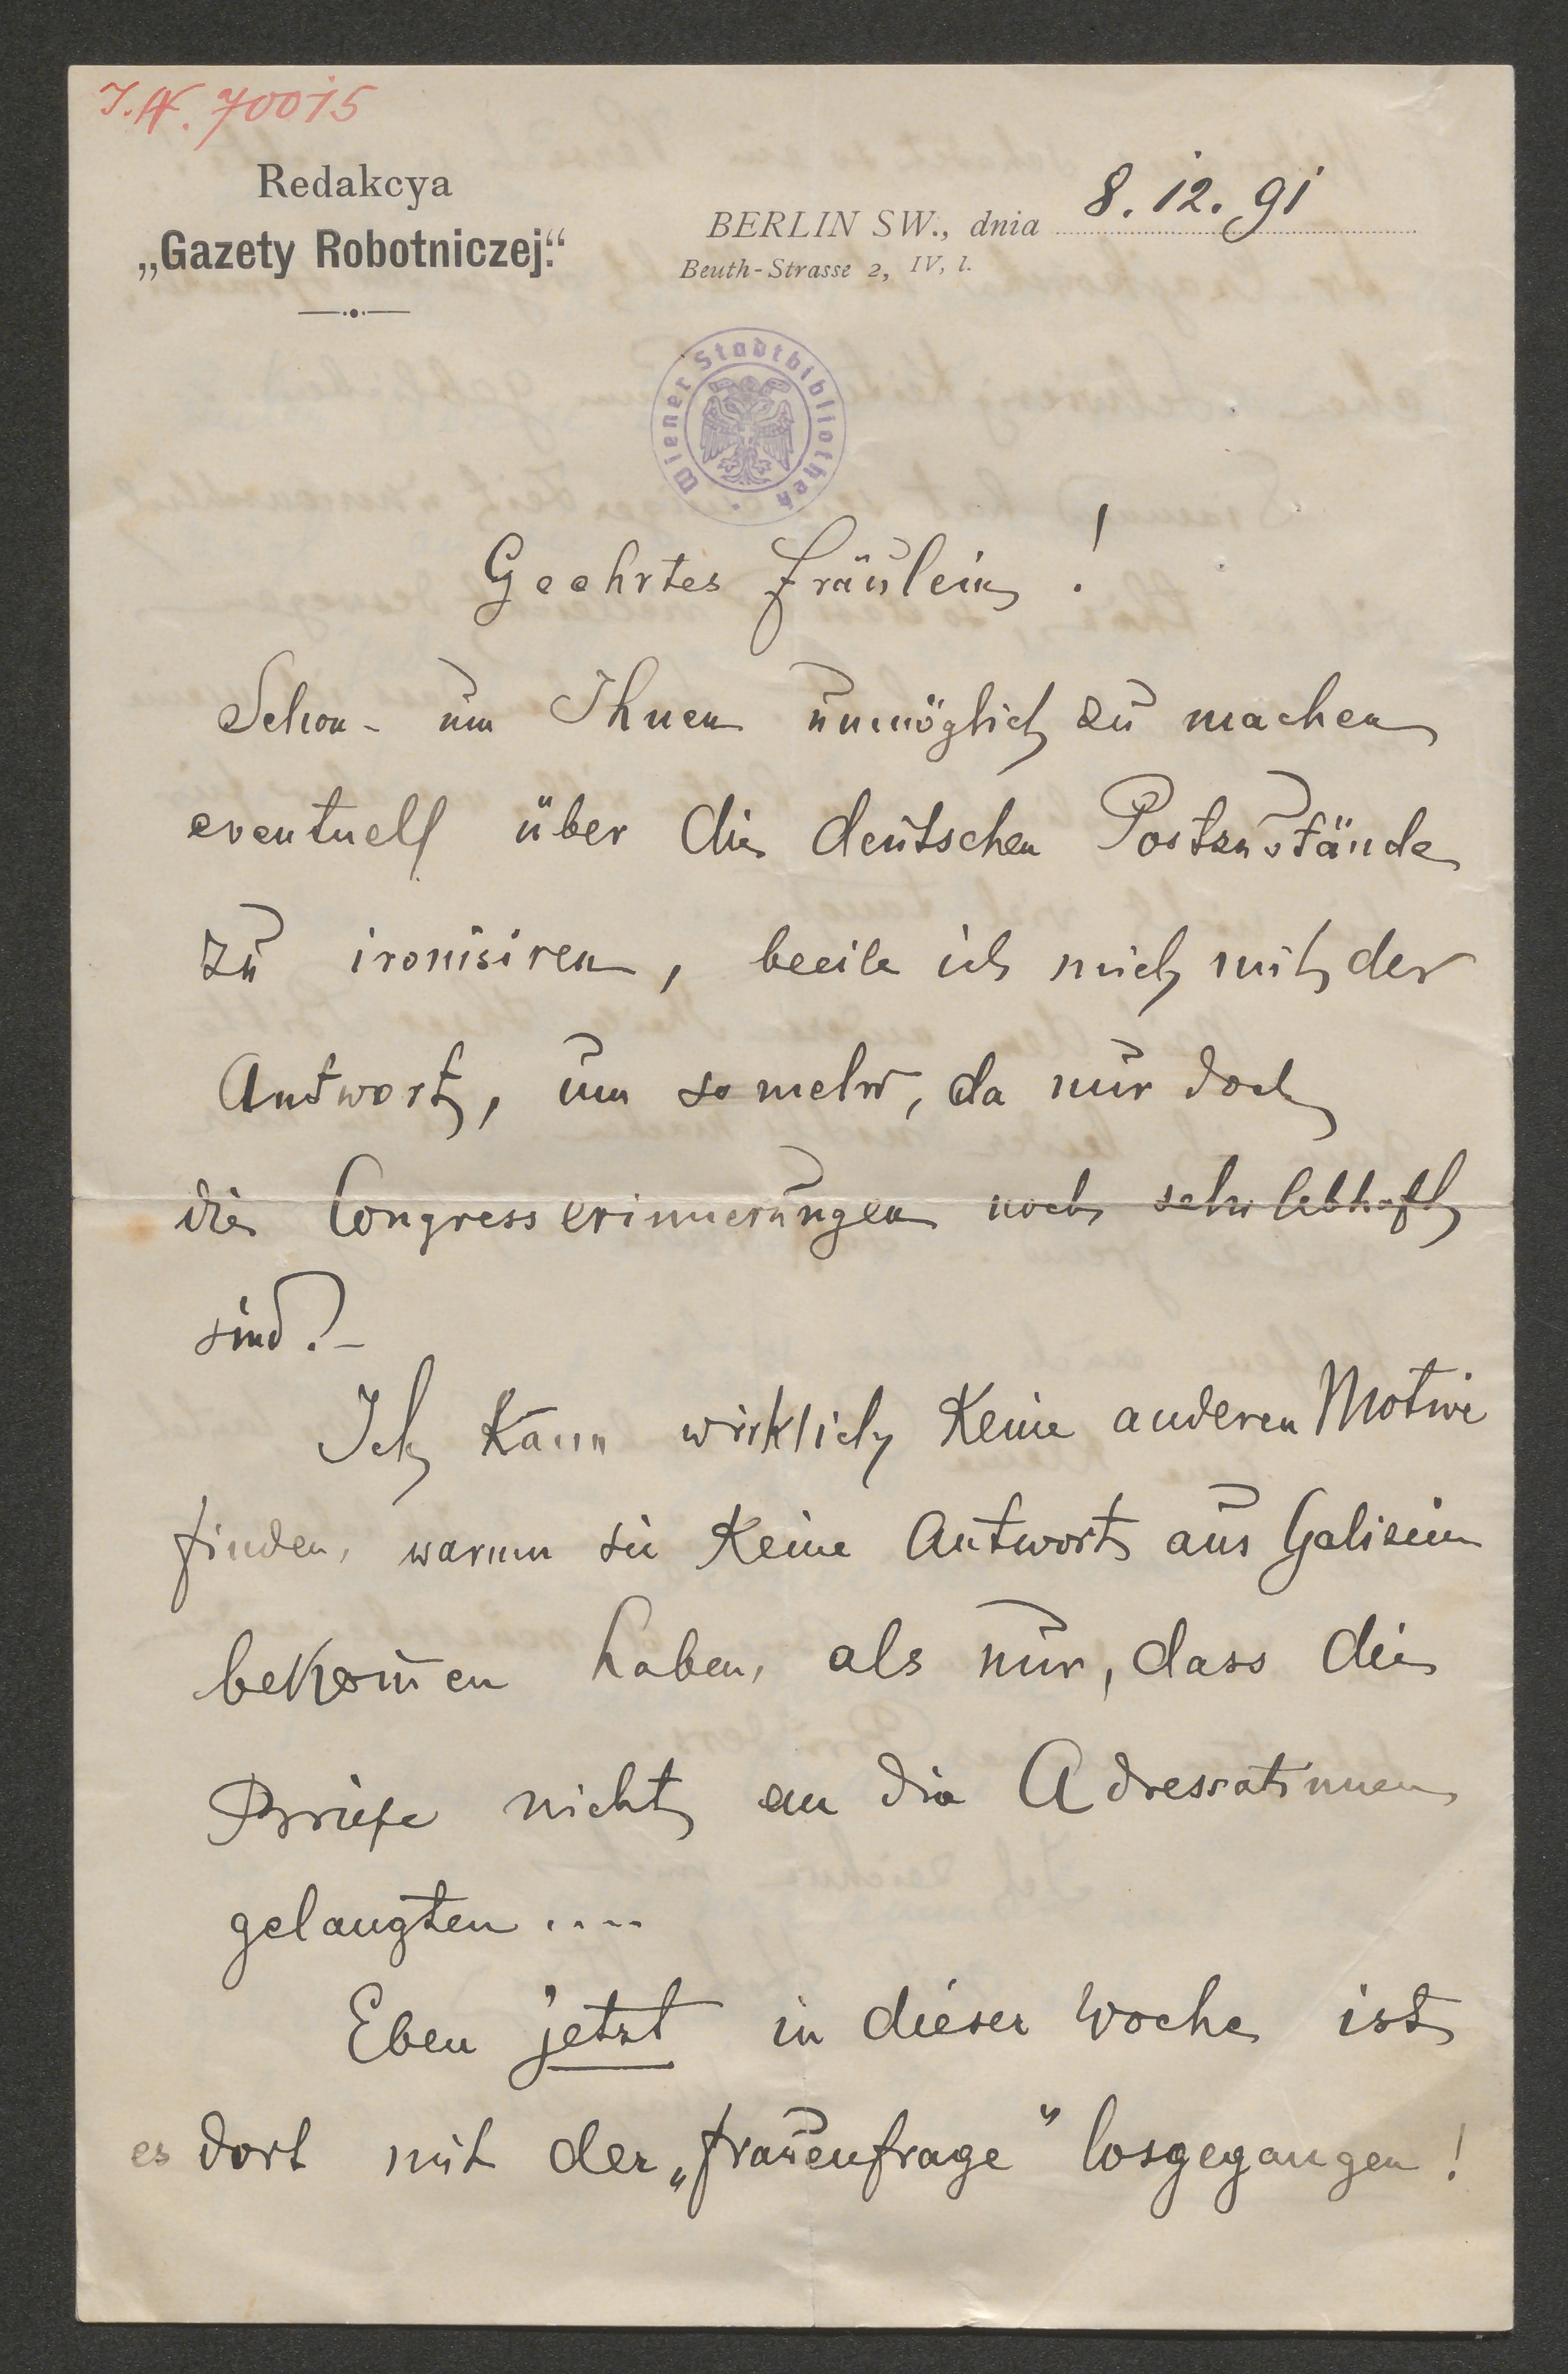 J.N. 70015
Redakcya
„Gazety Robotniczej“.
BERLIN SW., dnia 8. 12. 91
Beuth-Strasse 2, IV, l.
Wiener Stadtbibliothek
Geehrtes Fräulein!
Schon - um Ihnen unmöglich zu machen
eventuell über die deutschen Postzustände
zu ironisiren, beeile ich mich mit der
Antwort, um so mehr, da mir doch
die Congresserinnerungen noch sehr lebhaft
sind.-
Ich kann wirklich keine anderen Motive
finden, warum sie keine Antwort aus Galizien
bekom̄en haben, als nur, dass die
Briefe nicht an die Adressatinnen
gelangten ....
Eben jetzt in dieser Woche ist
es dort mit der „Frauenfrage“ losgegangen!